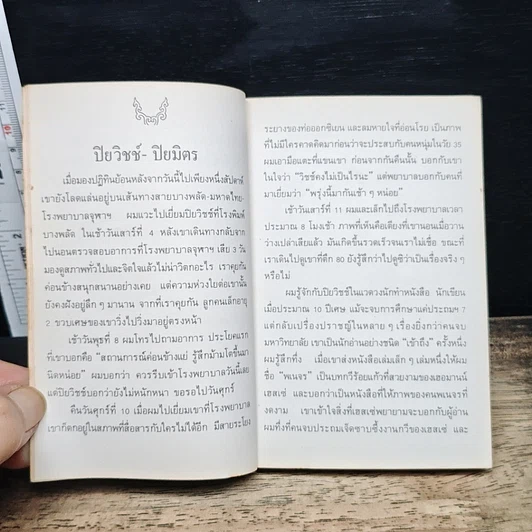 ปิยวิชช์- ปิยมิตร
เมื่อมองปฏิทินย้อนหลังจากวันนี้ไปเพียงหนึ่งสัปดาห์
เขายังโลดแล่นอยู่บนเส้นทางสายบางพลัด-มหาดไทย-
โรงพยาบาลจุฬาฯ ผมแวะไปเยี่ยมปิยวิชช์ที่โรงพิมพ์
บางพลัด ในเช้าวันเสาร์ที่ 4 หลังเขาเดินทางกลับจาก
ไปนอนตรวจสอบอาการที่โรงพยาบาลจุฬาฯ เสีย 3 วัน
มองดูสภาพทั่วไปและจิตใจแล้วไม่น่าวิตกอะไร เราคุยกัน
ค่อนข้างสนุกสนานอย่างเคย แต่ความห่วงใยต่อเขานั้น
ยังคงฝังอยู่ลึก ๆ มานาน จากที่เราคุยกัน ลูกคนเล็กอายุ
2 ขวบเศษของเขาวิ่งไปวิ่งมาอยู่ตรงหน้า
เช้าวันพุธที่ 8 ผมโทรไปถามอาการ ประโยคแรก
ที่เขาบอกคือ "สถานการณ์ค่อนข้างแย่ รู้สึกม้ามโตขึ้นมา
นิดหน่อย" ผมบอกว่า ควรรีบเข้าโรงพยาบาลวันนี้เลย
แต่ปิยวิชช์บอกว่ายังไม่หนักหนา ขอรอไปวันศุกร์
คืนวันศุกร์ที่ 10 เมื่อผมไปเยี่ยมเขาที่โรงพยาบาล
เขาก็ตกอยู่ในสภาพที่สื่อสารกับใครไม่ได้อีก มีสายระโยง
ระยางของท่อออกซิเยน และลมหายใจที่อ่อนโรย เป็นภาพ
ที่ไม่มีใครคาดคิดมาก่อนว่าจะประสบกับคนหนุ่มในวัย 35
ผมเอามือแตะที่แขนเขา ก่อนจากกันคืนนั้น บอกกับเขา
ในใจว่า "วิชช์คงไม่เป็นไรนะ" แต่พยาบาลบอกกับคนที่
มาเยี่ยมว่า "พรุ่งนี้มากันเช้า ๆ หน่อย"
เช้าวันเสาร์ที่ 11 ผมและเล็กไปถึงโรงพยาบาลเวลา
ประมาณ 8 โมงเช้า ภาพที่เห็นคือเตียงที่เขานอนเมื่อวาน
ว่างเปล่าเสียแล้ว มันเกิดขึ้นรวดเร็วจนเราไม่เชื่อ ขณะที่
เราเดินไปดูเขาที่ตึก 80 ยังรู้สึกว่าไปดูซิว่าเป็นเรื่องจริง ๆ
หรือไม่
ผมรู้จักกับปิยวิชช์ในแวดวงนักทำหนังสือ นักเขียน
เมื่อประมาณ 10 ปีเศษ แม้จะจบการศึกษาแค่ประถมฯ 7
แต่กลับเรื่องปราชญ์ในหลาย ๆ เรื่องยิ่งกว่าคนจบ
มหาวิทยาลัย เขาเป็นนักอ่านอย่างชนิด "เข้าถึง" ครั้งหนึ่ง
ผมรู้สึกทึ่ง เมื่อเขาส่งหนังสือเล่มเล็ก ๆ เล่มหนึ่งให้ผม
ชื่อ "พเนจร" เป็นบทกวีร้อยแก้วที่สวยงามของเฮอมานน์
เฮสเซ่ และบอกว่าเป็นหนังสือที่ให้ภาพของคนพเนจรที่
งดงาม เขาเข้าใจสิ่งที่เฮสเซ่พยายามจะบอกกับผู้อ่าน
ผมทึ่งที่คนจบประถมเจ็ดซาบซึ้งงานกวีของเฮสเซ่ และ